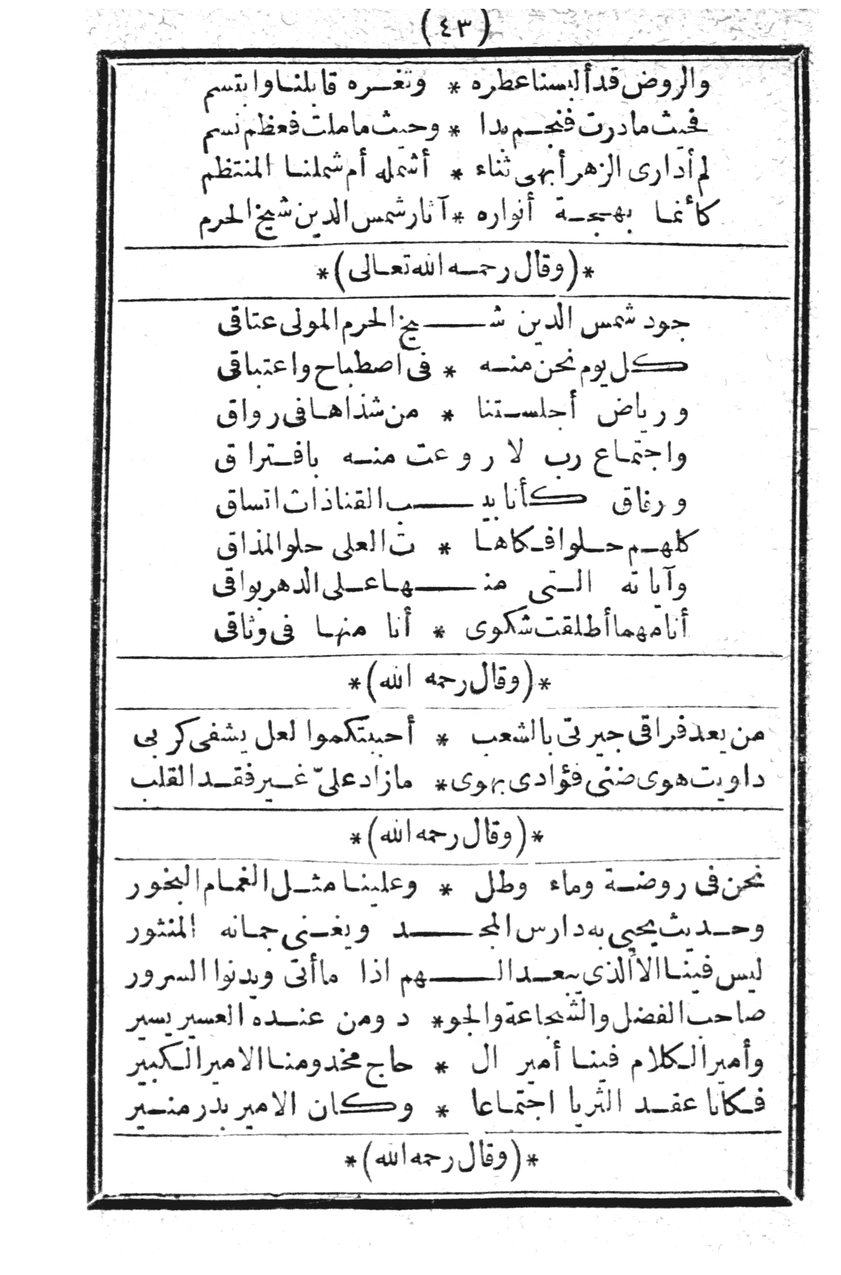 (٤٣)
والروض قد ألبسنا عطره * وثغره قابلنا وابتسم
فحيث ما درت فنجم بدا * وحيث ما ملت فعظم نسم
لم أدارى الزهر أبهى ثناء * أشمله أم شملنا المنتظم
كأنما بهجة أنواره * آثار شمس الدين شيخ الحرم
*(وقال رحمه الله تعالى)*
جود شمس الدين شيخ الحرم المولى عتاقى
كل يوم نحن منه * فى اصطباح واعتباقى
ورياض أجلستنا * من شذاها فى رواق
واجتماع رب لا روعت منه بافتراق
ورفاق كأنابيب القناذات اتساق
كلهم حلوافكاها * ت العلى حلو المذاق
وآياته التى منها على الدهر بواقى
أنا مهما أطلقت شكوى * أنا منها فى وثاقى
*(وقال رحمه الله)*
من بعد فراقى جيرتى بالشعب * أحببتكموا لعل يشفى كربى
داويت هوى ضنى فؤادى بهوى * ما زاد علىّ غير فقد القلب
*(وقال رحمه الله)*
نحن فى روضة وماء وظل * وعلينا مثل الغمام البخور
وحديث يحيى به دارس المجد ويغنى جمانه المنثور
ليس فينا الا الذي يبعد الهم اذا ما أتى ويدنوا السرور
صاحب الفضل والشجاعة والجو * د ومن عنده العسير يسير
وأمير الكلام فينا أمير ال * حاج مخدومنا الامير الكبير
فكانا عقد الثريا اجتماعا * وكان الامير بدر منير
*(وقال رحمه الله)*